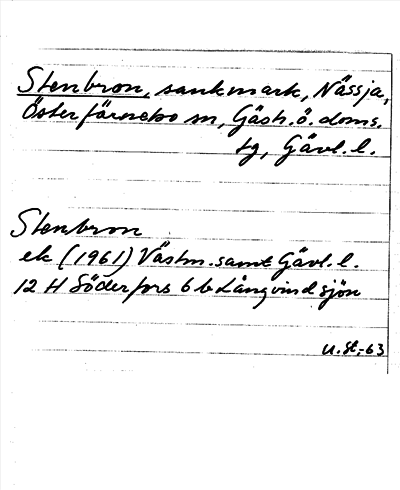 Stenbron, sankmark, Nässja,
Österfärnebo sn, Gästr. ö. doms.
tg, Gävl. l.
Stenbron
ek (1961) Västm. samt Gävl. l.
12 H Söderfors 6 b Långvindsjön
U. St.-63